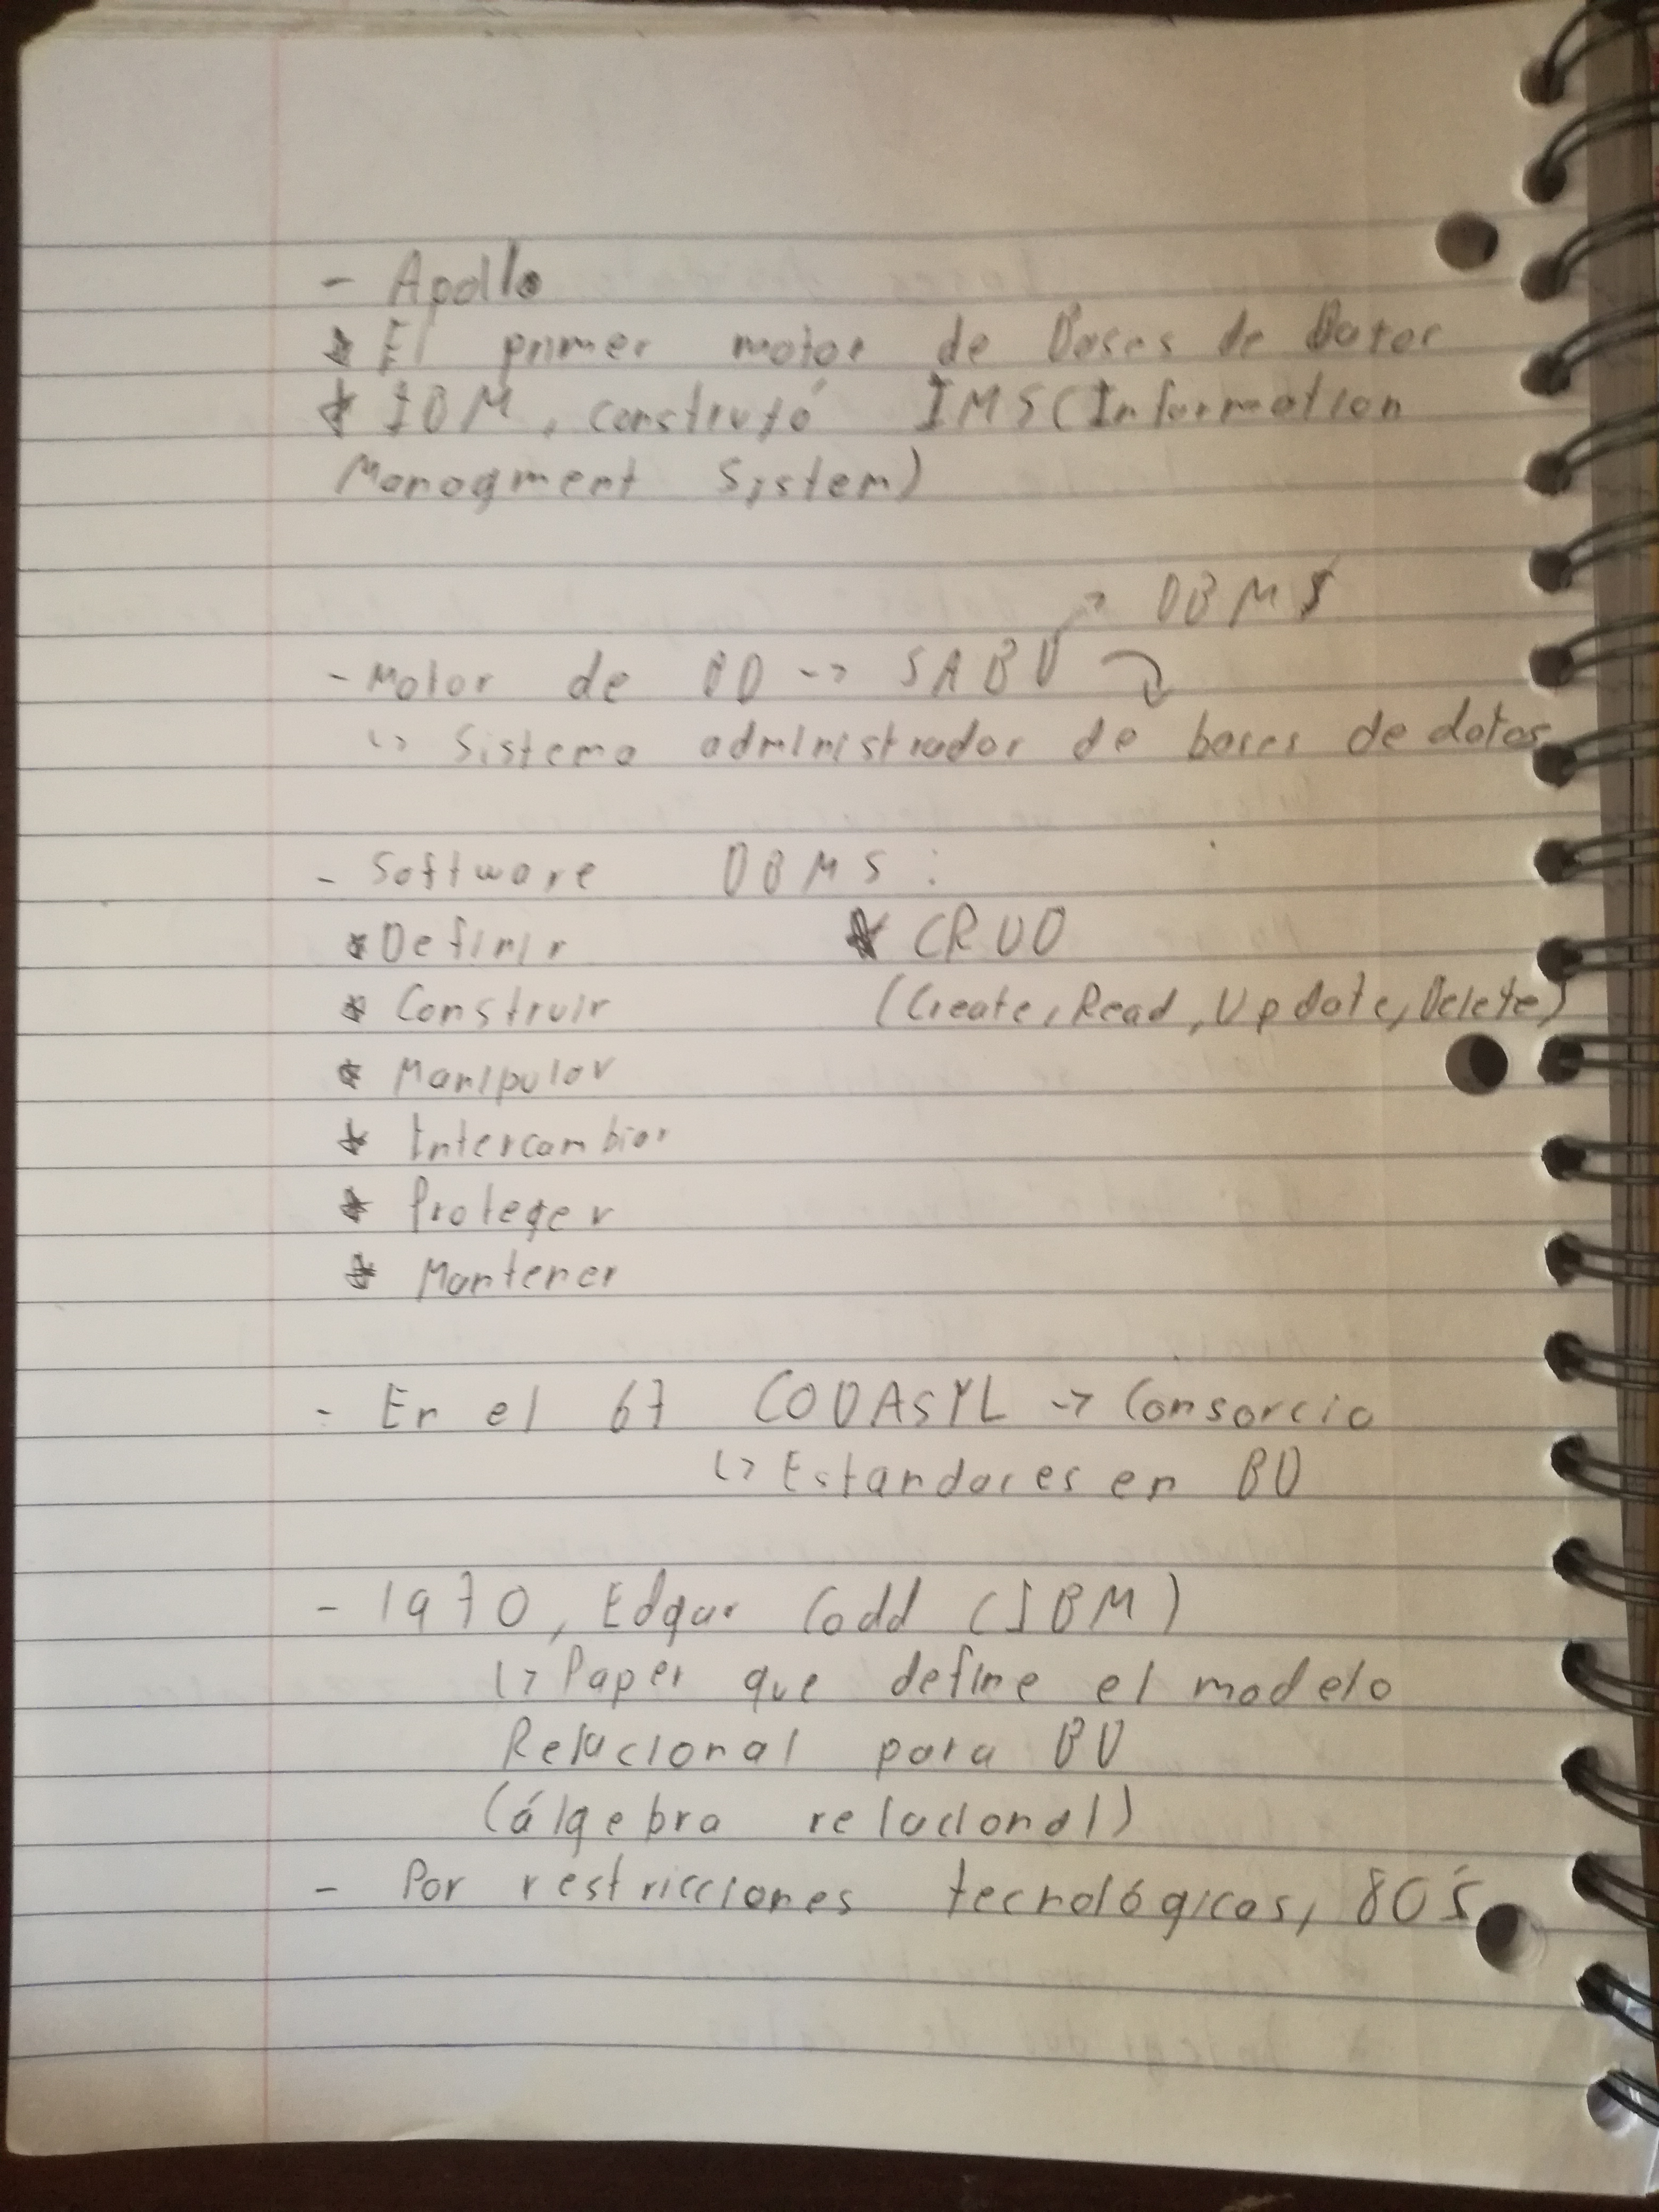 - Apollo
* El primer motor de Bases de Datos
* IBM, construyó IMS (Information
Managment System)
→ DBMS
- Motor de BD -> SABD
↳ Sistema administrador de bases de datos
- Software DBMS:
* Definir * CRUD
* Construir (Create, Read, Update, Delete)
* Manipular
* Intercambiar
* Proteger
* Mantener
- En el 67 CODASYL -> Consorcio
↳ Estandares en BD
- 1970, Edgar Codd (IBM)
↳ Paper que define el modelo
Relacional para BD
(álgebra relacional)
- Por restricciones tecnológicas, 80's